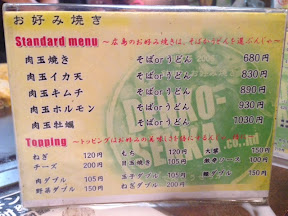 お好み焼き
Standard menu ～広島のお好み焼きは、そばかうどんを選ぶんじゃ～
肉玉焼き そばorうどん 680円
肉玉イカ天 そばorうどん 830円
肉玉キムチ そばorうどん 890円
肉玉ホルモン そばorうどん 930円
肉玉牡蠣 そばorうどん 1030円
Topping ～トッピングはお好みの美味しさ
ねぎ 120円 もち 120円 大葉 150円
チーズ 200円 目玉焼き 105円 激辛ソース 100円
肉ダブル 105円 玉子ダブル 50円 麺ダブル 150円
野菜ダブル 105円 ねぎダブル 200円
.co.ltd